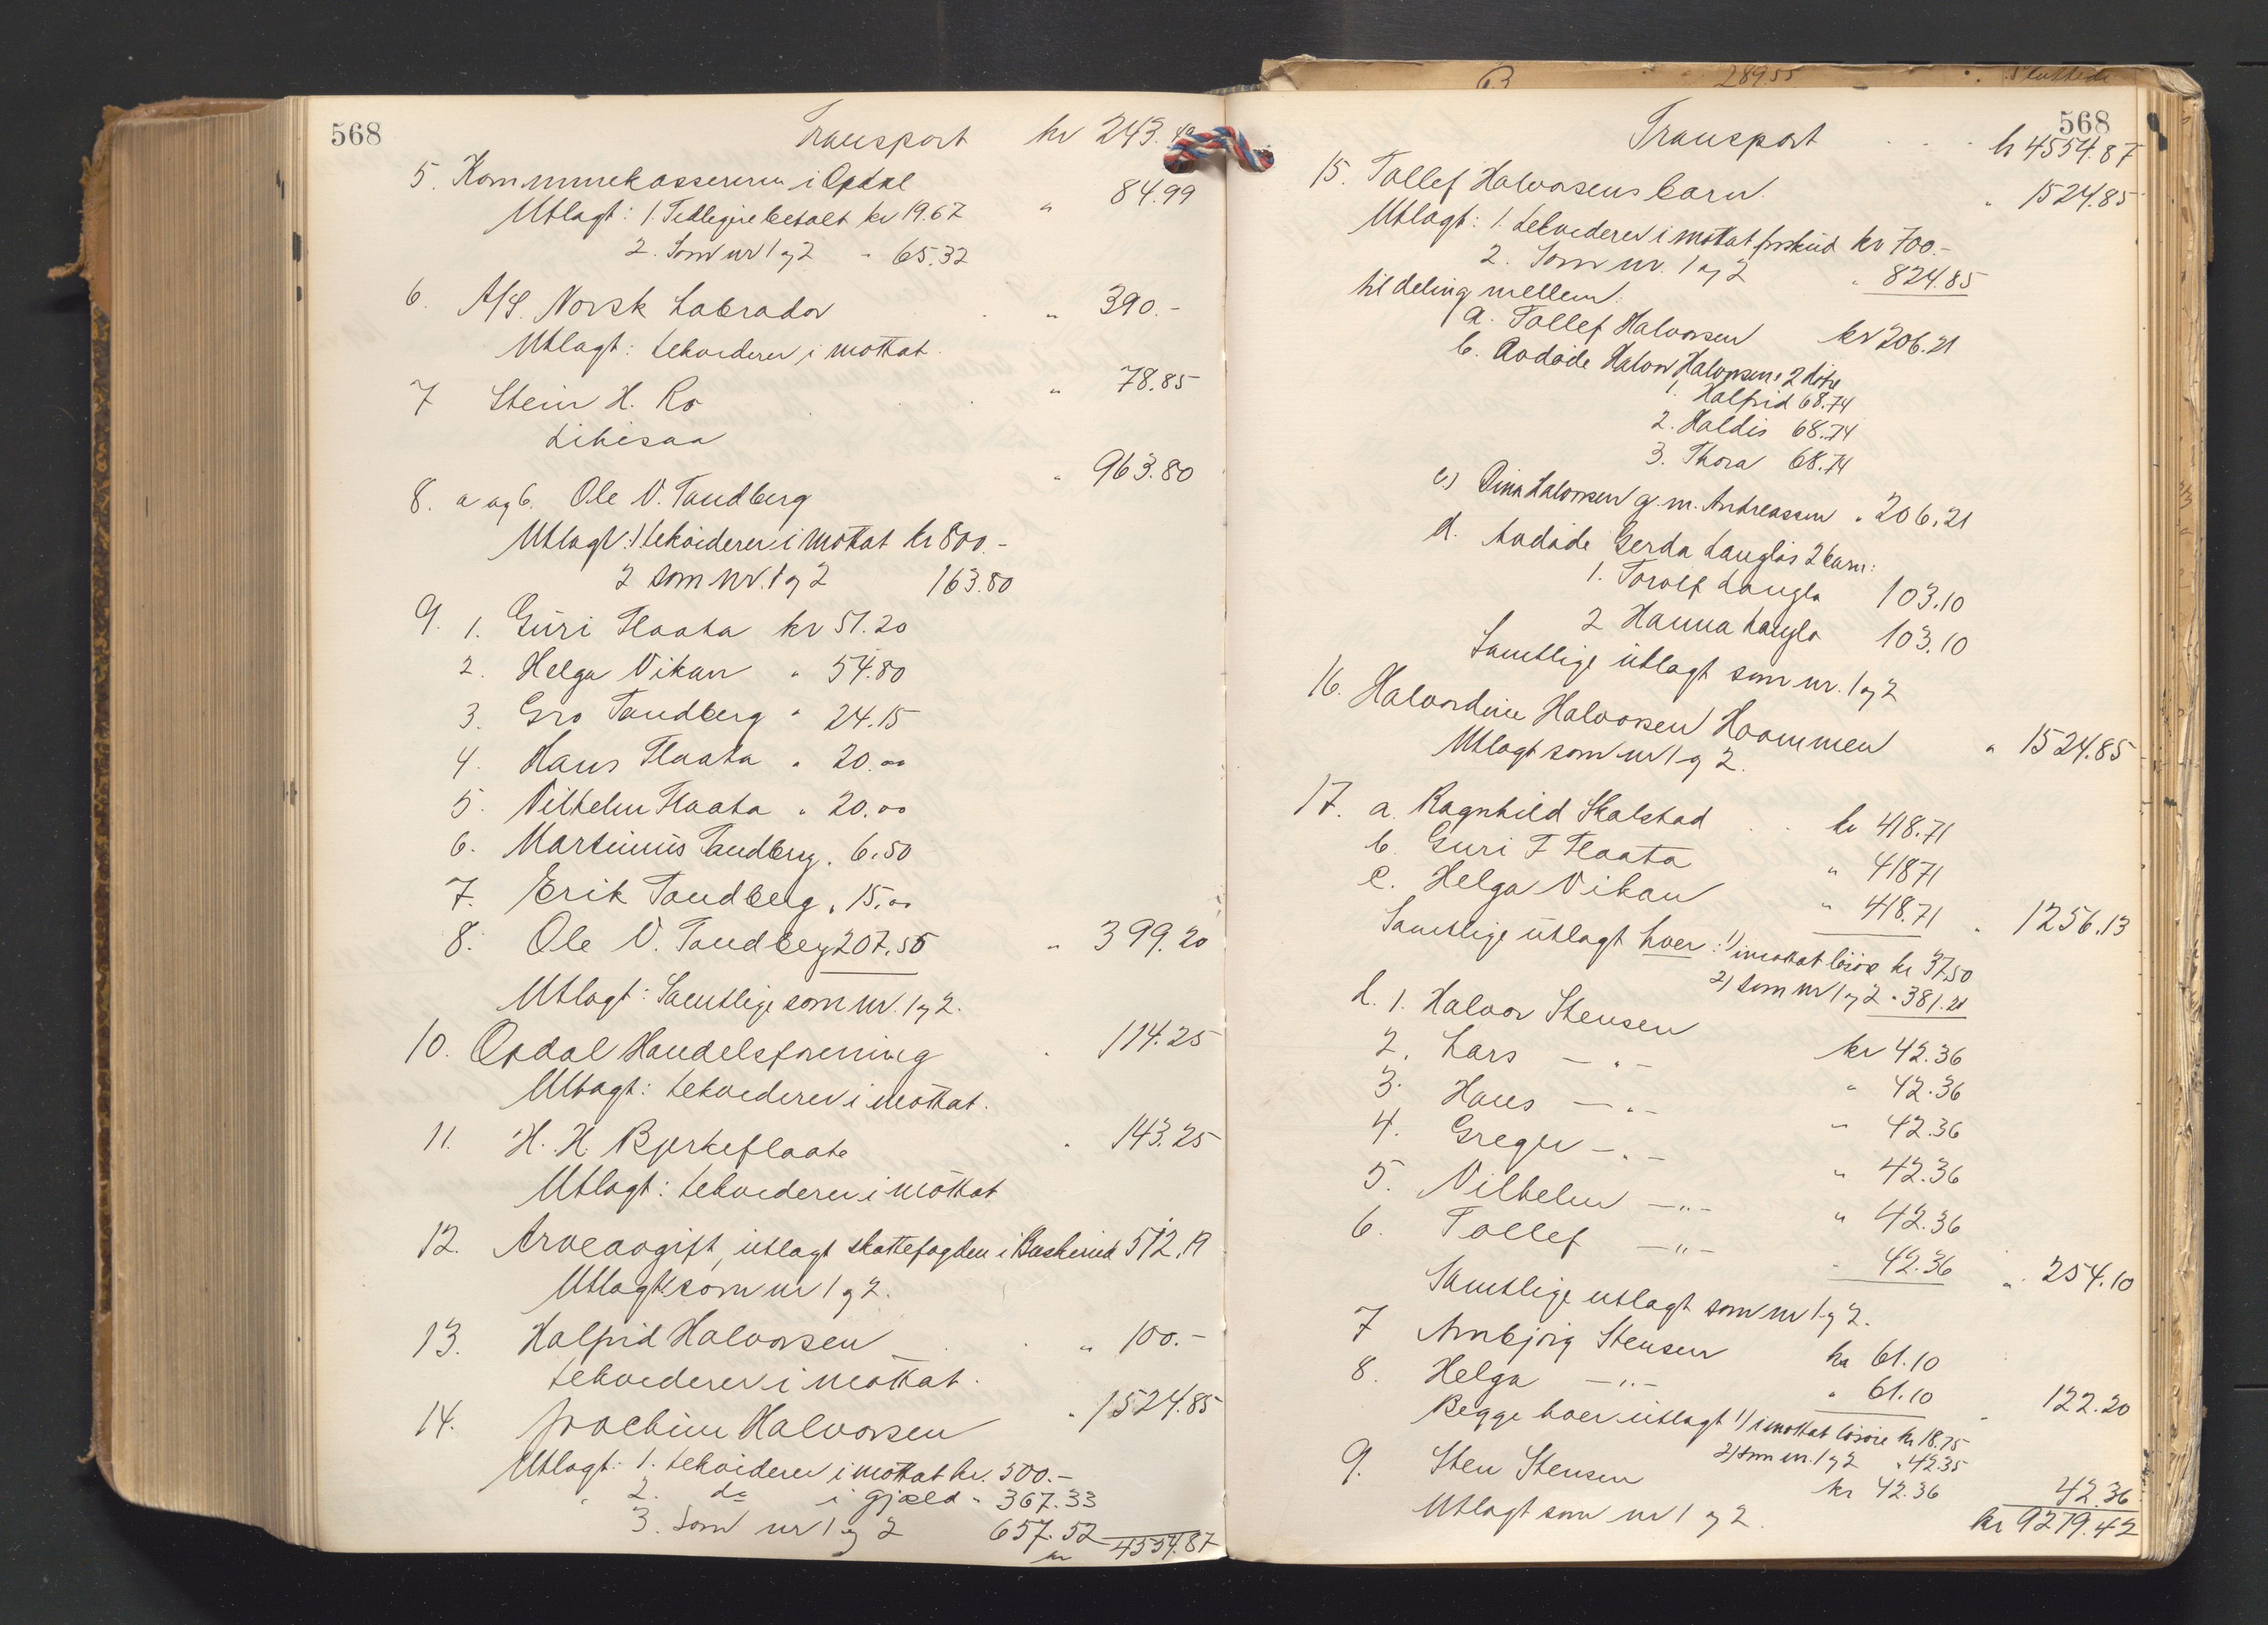 568
Transport kr 243.
5. Kommunekassereren i Opdal " 84.99
Utlagt: 1. Tidligere betalt kr 19.67
2. Som nr 1 og 2 " 65.32
6. A/S. Norsk Labrador " 390.-
Utlagt: Likvideres i mottat.
7 Stein H. Ro " 78.85
Likesaa
8. a og b. Ole V. Tandberg " 963.80
Utlagt: 1 likvideres i mottat kr 800.-
2 som nr. 1 og 2 163.80
9. 1. Guri Flaata kr 51.20
2. Helga Vikan " 54.80
3. Gro Tandberg " 24.15
4. Hans Flaata " 20.00
5. Vilhelm Flaata " 20.00
6. Martinius Tandberg " 6.50
7. Erik Tandberg " 15.00
8. Ole V. Tandberg 207.55 " 399.20
Utlagt: Samtlige som nr. 1 og 2.
10. Opdal Handelsforening " 114.25
Utlagt: Likvideres i mottat.
11. H. H. Bjerkeflaata " 143.25
Utlagt: Likvideres i mottat
12. Arveavgift, utlagt skattefogden i Buskerud 512.19
Utlagt som nr 1 og 2.
13. Halfrid Halvorsen " 100.-
Likvideres i mottat.
14. Joachim Halvorsen " 1524.85
Utlagt: 1. Likvideres i mottat kr. 500.-
2. do i gjæld " 367.33
3. Som nr 1 og 2 657.52
kr 4554.87
63 289.55
568
Transport kr 4554.87
15. Tollef Halvorsens barn " 1524.85
Utlagt: 1. Likvideres i mottat forskud kr 700.-
2. Som nr. 1 og 2 " 824.85
til deling mellem:
a. Tollef Halvorsen kr 206.21
b. Avdøde Halvor Halvorsens 2 døtre
1. Halfrid 68.74
2. Haldis 68.74
3. Thora 68.74
c) Dina Halvorsen g. m. Andreassen " 206.21
d. Avdøde Gerda Langlos 2 barn:
1. Torolf Langlo 103.10
2 Hanna Langlo 103.10
Samtlige utlagt som nr. 1 og 2
16. Halvordine Halvorsen Hoommen " 1524.85
Utlagt som nr 1 og 2.
17. a. Ragnhild Skalstad kr 418.71
b. Guri T Flaata " 418 71
c. Helga Vikan " 418.71 " 1256.13
Samtlige utlagt hver: 1) i mottat løsøre kr 37.50
2) som nr 1 og 2 " 381.21
d. 1. Halvor Stensen kr 42.36
2. Lars —"— " 42.36
3. Hans —"— " 42.36
4. Greger —"— " 42.36
5. Vilhelm —"— " 42.36
6. Tollef —"— " 42.36 " 254.10
Samtlige utlagt som nr 1 og 2.
7 Annbjørg Stensen kr 61.10
8. Helga —"— " 61.10 " 122.20
Begge hver utlagt 1) i mottat løsøre kr 18.75
2) som nr. 1 og 2 " 42.35
9. Sten Stensen kr 42.36 42.36
Utlagt som nr 1 og 2. kr 9279.42